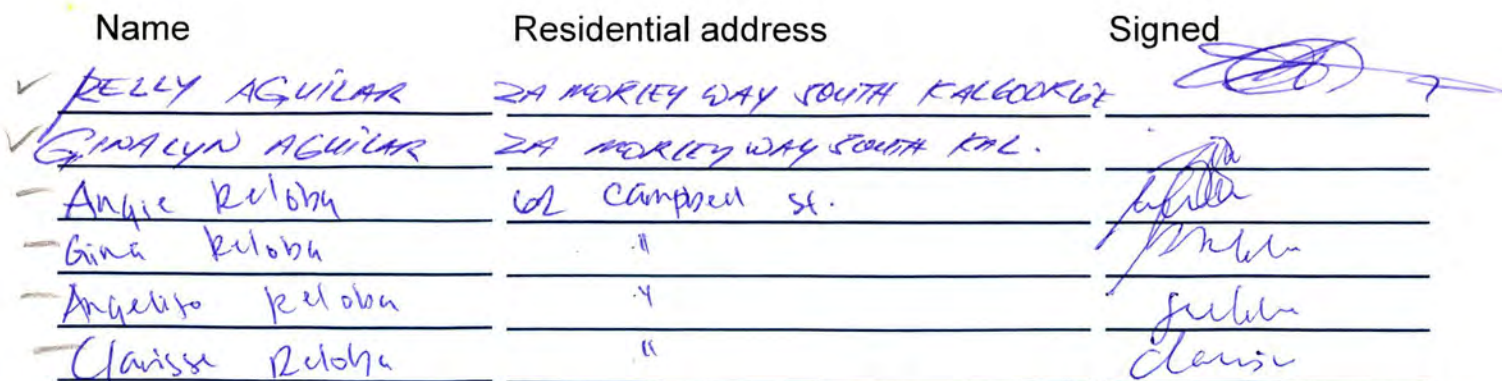 Name Residential address Signed
RELLY AGUILAR 2A MORLEY WAY SOUTH KALGOORLIE
GINALYN AGUILAR 2A MORLEY WAY SOUTH KAL.
Angie Reloba 62 Campbell st.
Gina Reloba "
Angelito Reloba "
Clarisse Reloba "